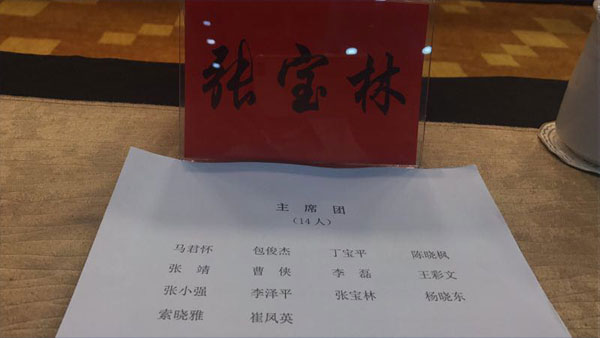 张宝林
主席团
(14人)
马君怀 包俊杰 丁宝平 陈晓枫
张靖 曹侠 李磊 王彩文
张小强 李泽平 张宝林 杨晓东
索晓雅 崔凤英